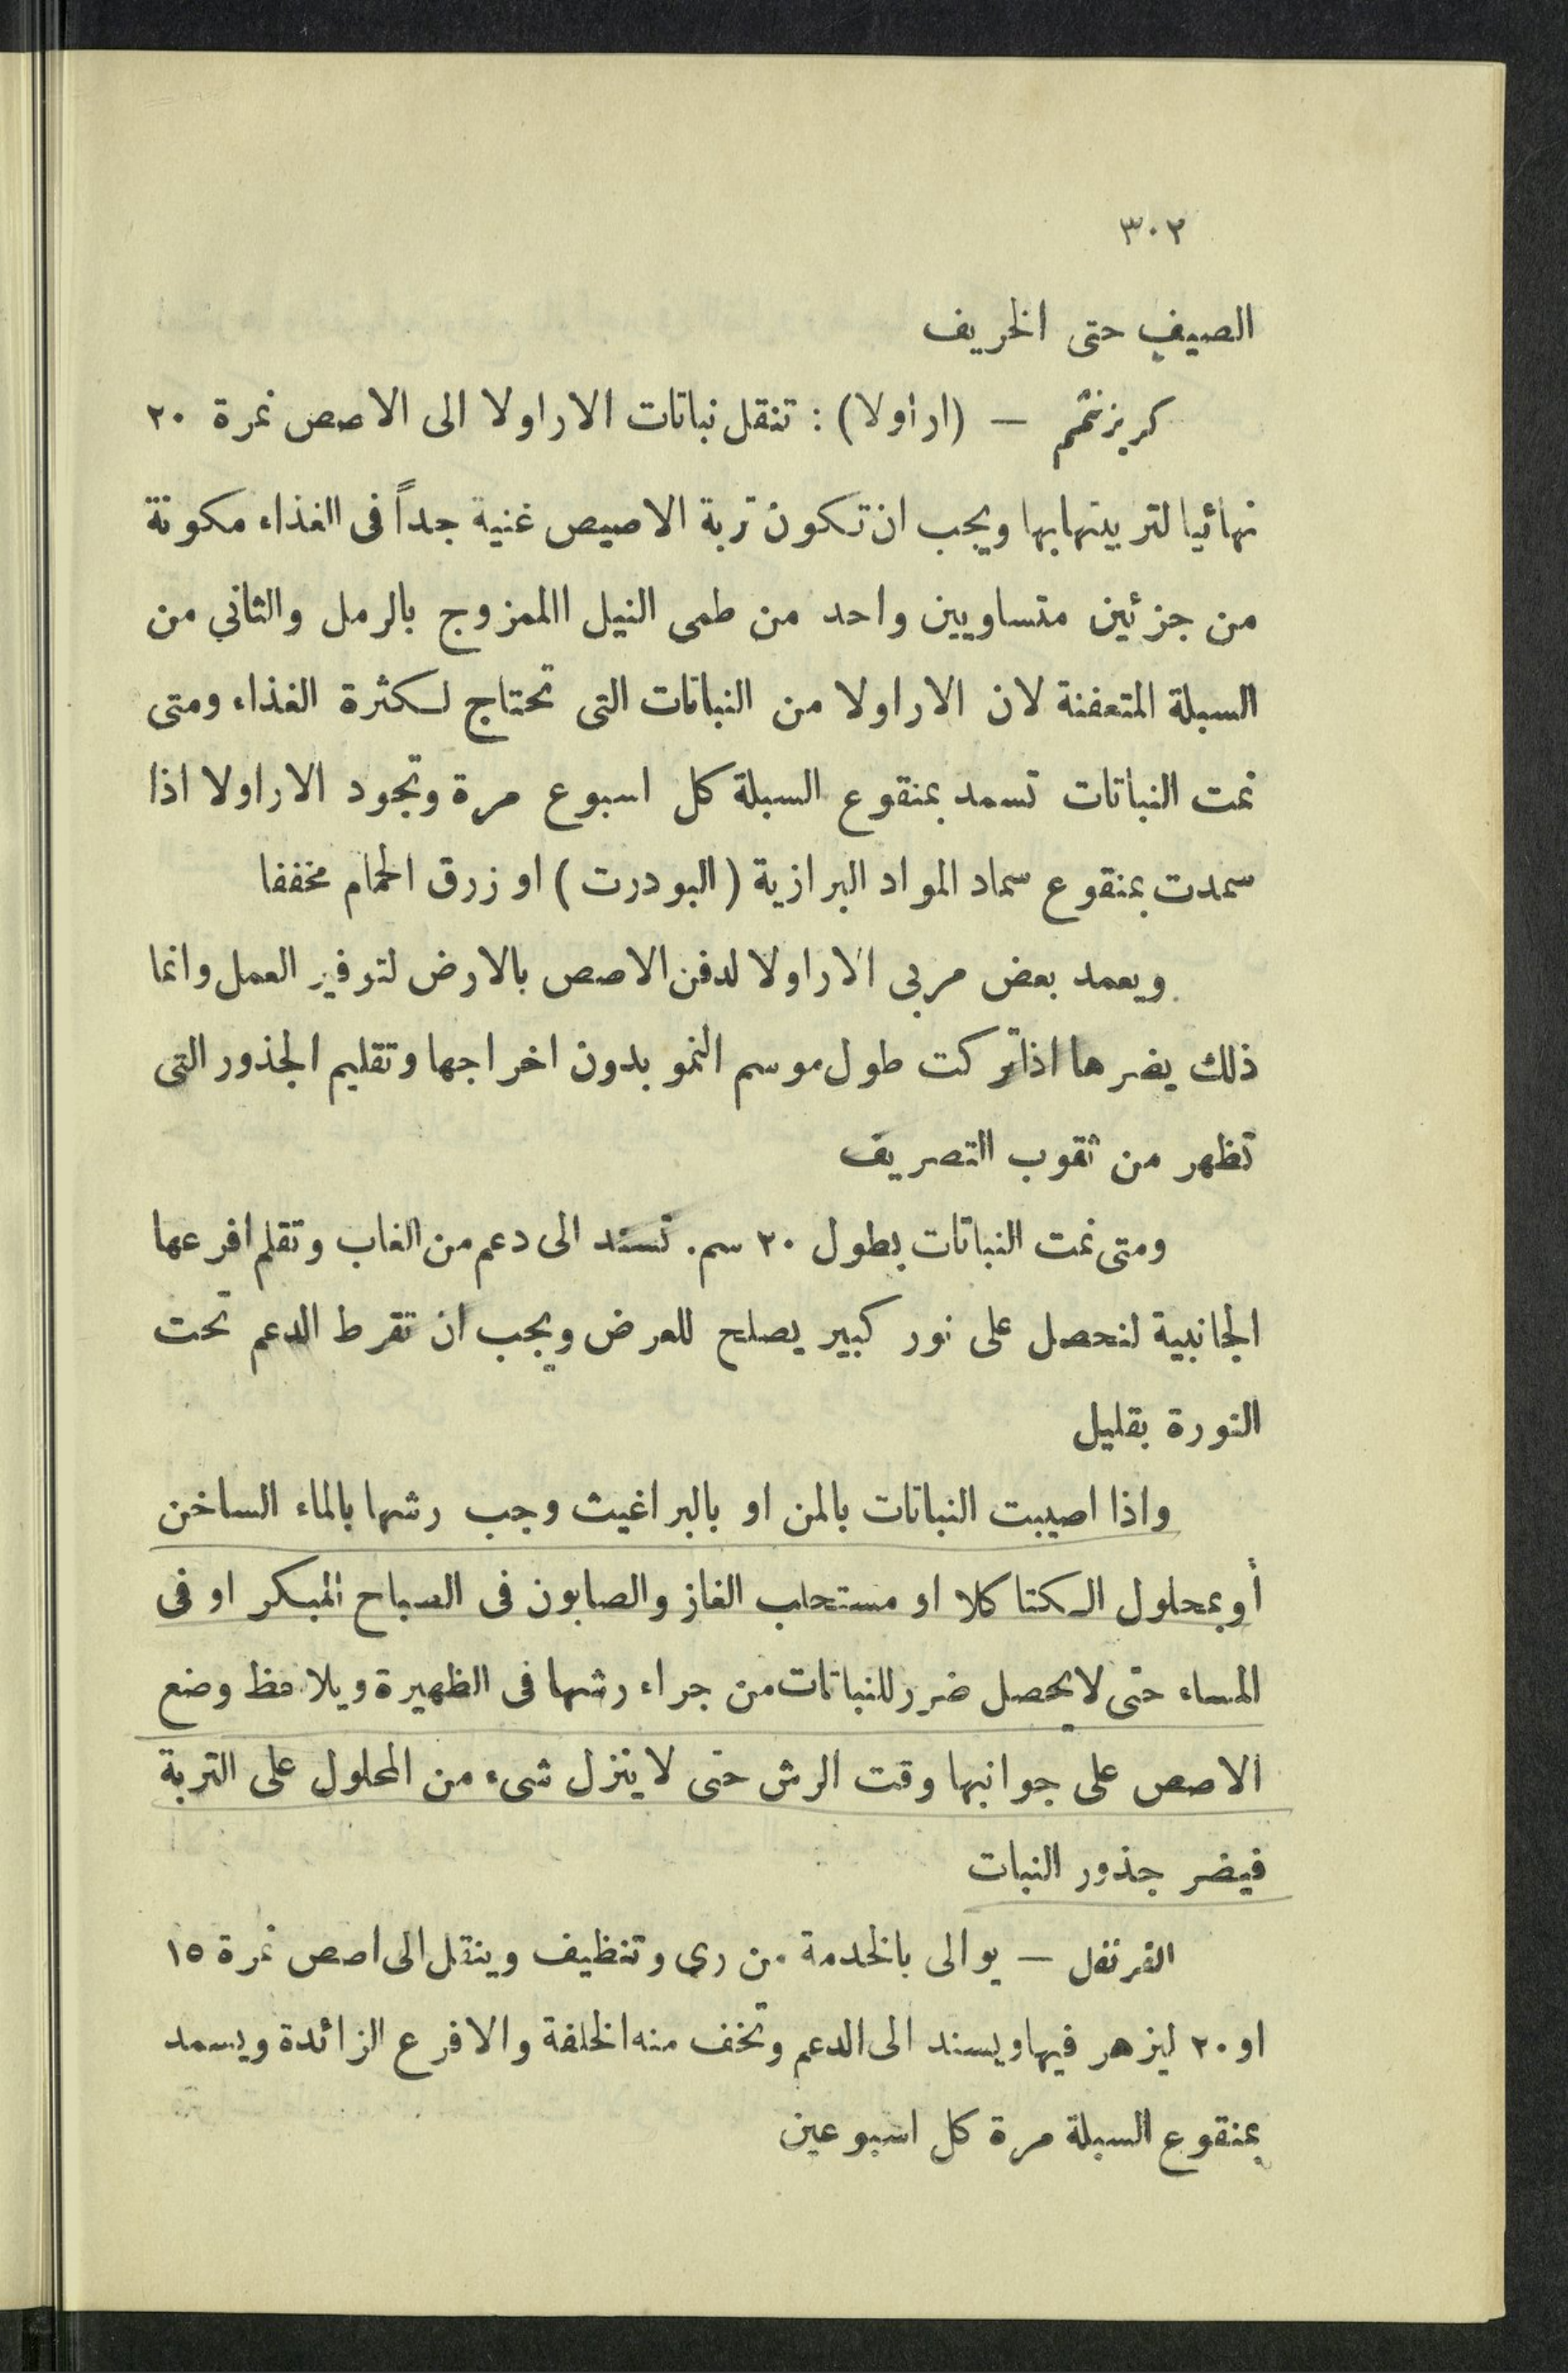 ٣٠٢
الصيف حتى الخريف
كريزنثمم — (اراولا) : تنقل نباتات الاراولا الى الاصص نمرة ٢٠
نهائيا لتربيتها بها ويجب ان تكون تربة الاصيص غنية جداً فى الغذاء مكونة
من جزئين متساويين واحد من طمى النيل االممزوج بالرمل والثاني من
السبلة المتعفنة لان الاراولا من النباتات التى تحتاج لكثرة الغذاء ومتى
نمت النباتات تسمد بمنقوع السبلة كل اسبوع مرة وتجود الاراولا اذا
سمدت بمنقوع سماد المواد البرازية (البودرت) او زرق الحمام مخففا
ويعمد بعض مربى الاراولا لدفن الاصص بالارض لتوفير العمل وانما
ذلك يضرها اذا تركت طول موسم النمو بدون اخراجها وتقليم الجذور التى
تظهر من ثقوب التصريف
ومتى نمت النباتات بطول ٢٠ سم. تسند الى دعم من الغاب وتقلم افرعها
الجانبية لنحصل على نور كبير يصلح للعرض ويجب ان تقرط الدعم تحت
النورة بقليل
واذا اصيبت النباتات بالمن او بالبراغيث وجب رشها بالماء الساخن
أو بمحلول الكتاكلا او مستحلب الغاز والصابون فى الصباح المبكر او فى
المساء حتى لا يحصل ضرر للنباتات من جراء رشها فى الظهيرة ويلاحظ وضع
الاصص على جوانبها وقت الرش حتى لا ينزل شىء من المحلول على التربة
فيضر جذور النبات
القرنفل — يوالى بالخدمة من رى وتنظيف وينقل الى اصص نمرة ١٥
او ٢٠ ليزهر فيها ويسند الى الدعم وتخف منه الخلفة والافرع الزائدة ويسمد
بمنقوع السبلة مرة كل اسبوعين